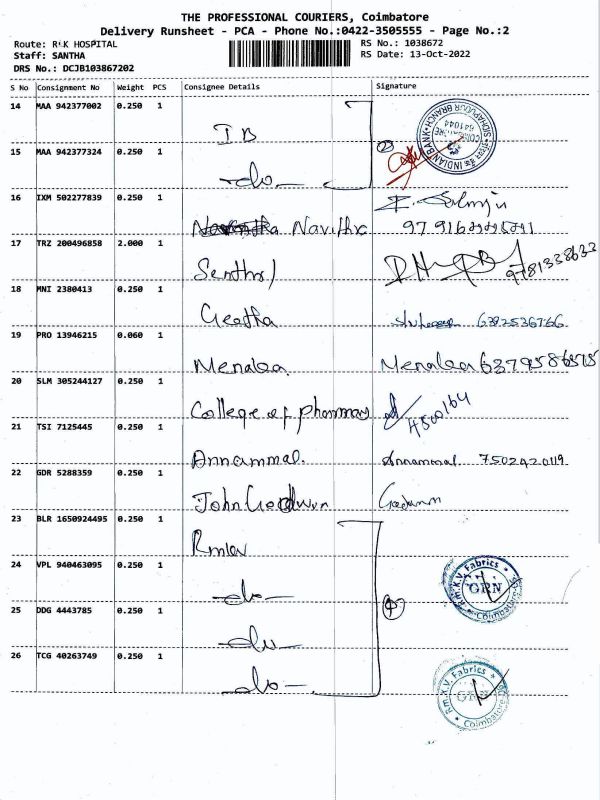 THE PROFESSIONAL COURIERS, Coimbatore
Delivery Runsheet - PCA - Phone No.:0422-3505555 - Page No.:2
Route: RK HOSPITAL
RS No.: 1038672
Staff: SANTHA
RS Date: 13-Oct-2022
DRS No.: DCJB103867202
S No Consignment No Weight PCS Consignee Details Signature
14 MAA 942377002 0.250 1
IB
INDIAN BANK
641044
15 MAA 942377324 0.250 1
-do-
2
16 IXM 502277839 0.250 1
Navitha
17 TRZ 200496858 2.000 1
Senthil
9781338632
18 MNI 2380413 0.250 1
Geetha
6392536766
19 PRO 13946215 0.060 1
Menaka
Menaka
20 SLM 305244127 0.250 1
College of pharmacy
4500164
21 TSI 7125445 0.250 1
Annammal.
Annammal 7502420119
22 GDR 5288359 0.250 1
John Goodwin
23 BLR 1650924495 0.250 1
Rmkv
24 VPL 940463095 0.250 1
-do-
R.m.K.V. Fabrics
GRN
Coimbatore
25 DDG 4443785 0.250 1
-do-
4
26 TCG 40263749 0.250 1
-do-
R.m.K.V. Fabrics
GRN
Coimbatore